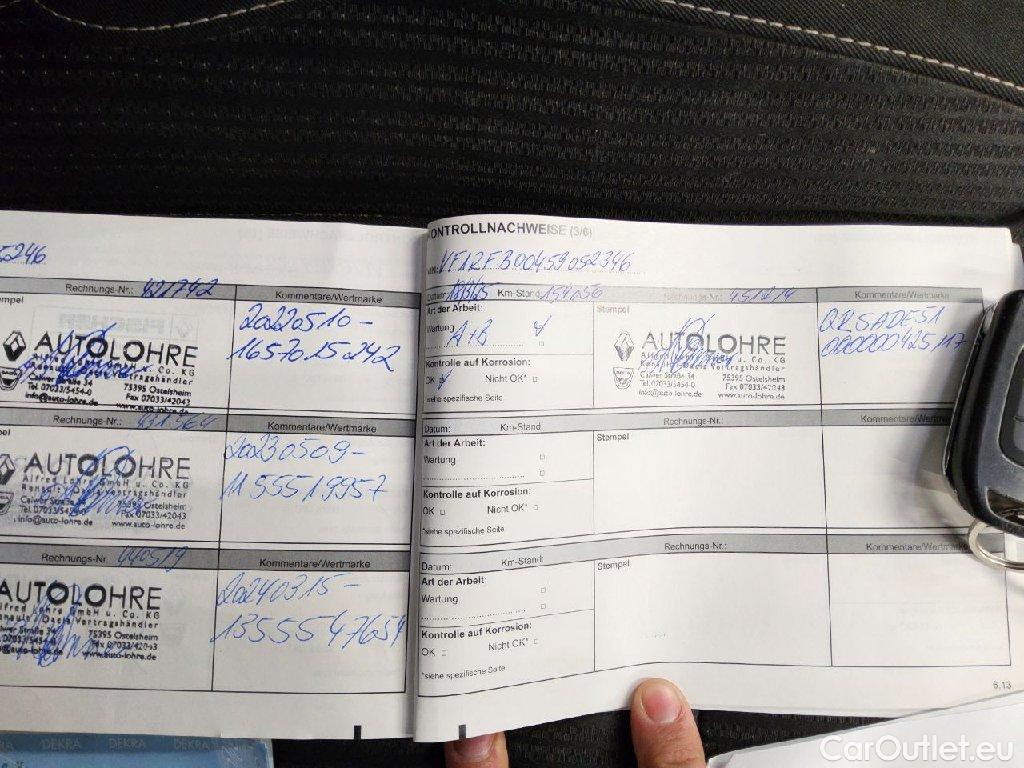 5246
Rechnungs-Nr.: 421742
Kommentare/Wertmarke
Stempel
AUTOLOHRE
Calwer Straße 34
75395 Ostelsheim
Tel. 07033/5454-0
Fax 07033/42043
info@auto-lohre.de
www.auto-lohre.de
20220510-
16570150242
Rechnungs-Nr.: 431564
Kommentare/Wertmarke
Stempel
AUTOLOHRE
Alfred Lohre GmbH u. Co. KG
Renault - Dacia Vertragshändler
Calwer Straße 34
75395 Ostelsheim
Fax 07033/42043
info@auto-lohre.de
www.auto-lohre.de
20230509-
1155519957
Rechnungs-Nr. 440519
Kommentare/Wertmarke
AUTOLOHRE
Alfred Lohre GmbH u. Co. KG
Renault - Dacia Vertragshändler
75395 Ostelsheim
Fax 07033/42043
info@auto-lohre.de
www.auto-lohre.de
20240315-
KONTROLLNACHWEISE (3/6)
VIN: VF1RFB00459052346
Datum: Km-Stand: 154056
Rechnungs-Nr.:
Kommentare/Wertmarke
Art der Arbeit:
Wartung
A+B
Kontrolle auf Korrosion:
OK Nicht OK*
*siehe spezifische Seite
Stempel
AUTOLOHRE
u. Co. KG
Vertragshändler
Calwer Straße 34
75395 Ostelsheim
Tel. 07033/5454-0
Fax 07033/42043
info@auto-lohre.de
www.auto-lohre.de
QRSADE51
000000425117
Datum: Km-Stand:
Rechnungs-Nr.:
Kommentare/Wertmarke
Art der Arbeit:
Wartung
Kontrolle auf Korrosion:
OK Nicht OK*
*siehe spezifische Seite
Stempel
Datum: Km-Stand:
Rechnungs-Nr.:
Kommentare/Wertmarke
Art der Arbeit:
Wartung
Kontrolle auf Korrosion:
OK Nicht OK*
*siehe spezifische Seite
Stempel
6.13
DEKRA DEKRA DEKRA DEKRA
CarOutlet.eu